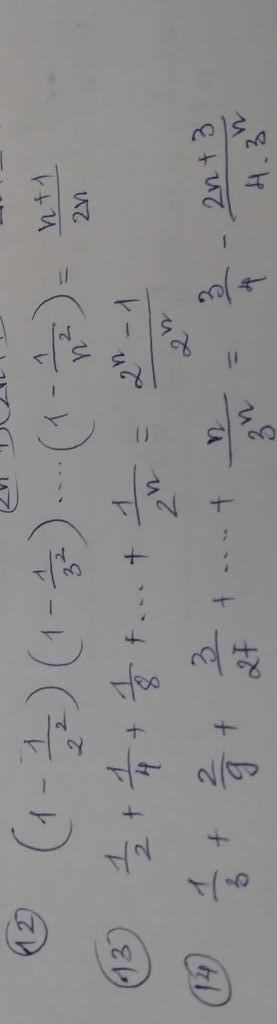 (12) (1 - 1/2²)(1 - 1/3²)....(1 - 1/n²) = (n+1)/(2n)
(13) 1/2 + 1/4 + 1/8 + ... + 1/2ⁿ = (2ⁿ - 1)/2ⁿ
(14) 1/3 + 2/9 + 3/27 + .... + n/3ⁿ = 3/4 - (2n+3)/(4·3ⁿ)